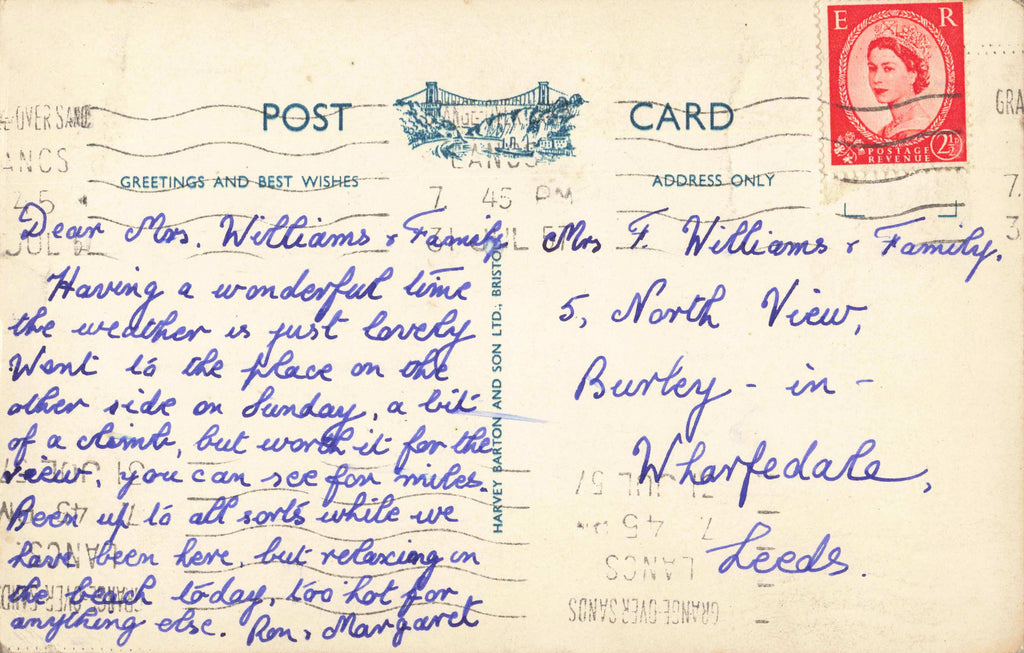 POST CARD
E R
POSTAGE REVENUE 2½D
GREETINGS AND BEST WISHES
ADDRESS ONLY
GRANGE-OVER-SANDS
LANCS
7 45 PM
31 JUL 57
Dear Mrs. Williams & Family
Having a wonderful time
the weather is just lovely
Went to the place on the
other side on Sunday, a bit
of a climb, but worth it for the
view, you can see for miles.
Been up to all sorts while we
have been here, but relaxing on
the beach today, too hot for
anything else. Ron & Margaret
HARVEY BARTON AND SON LTD., BRISTOL
Mrs F. Williams & Family.
5, North View,
Burley - in -
Wharfedale,
Leeds.
31 JUL 57
7 45 PM
LANCS
GRANGE-OVER-SANDS